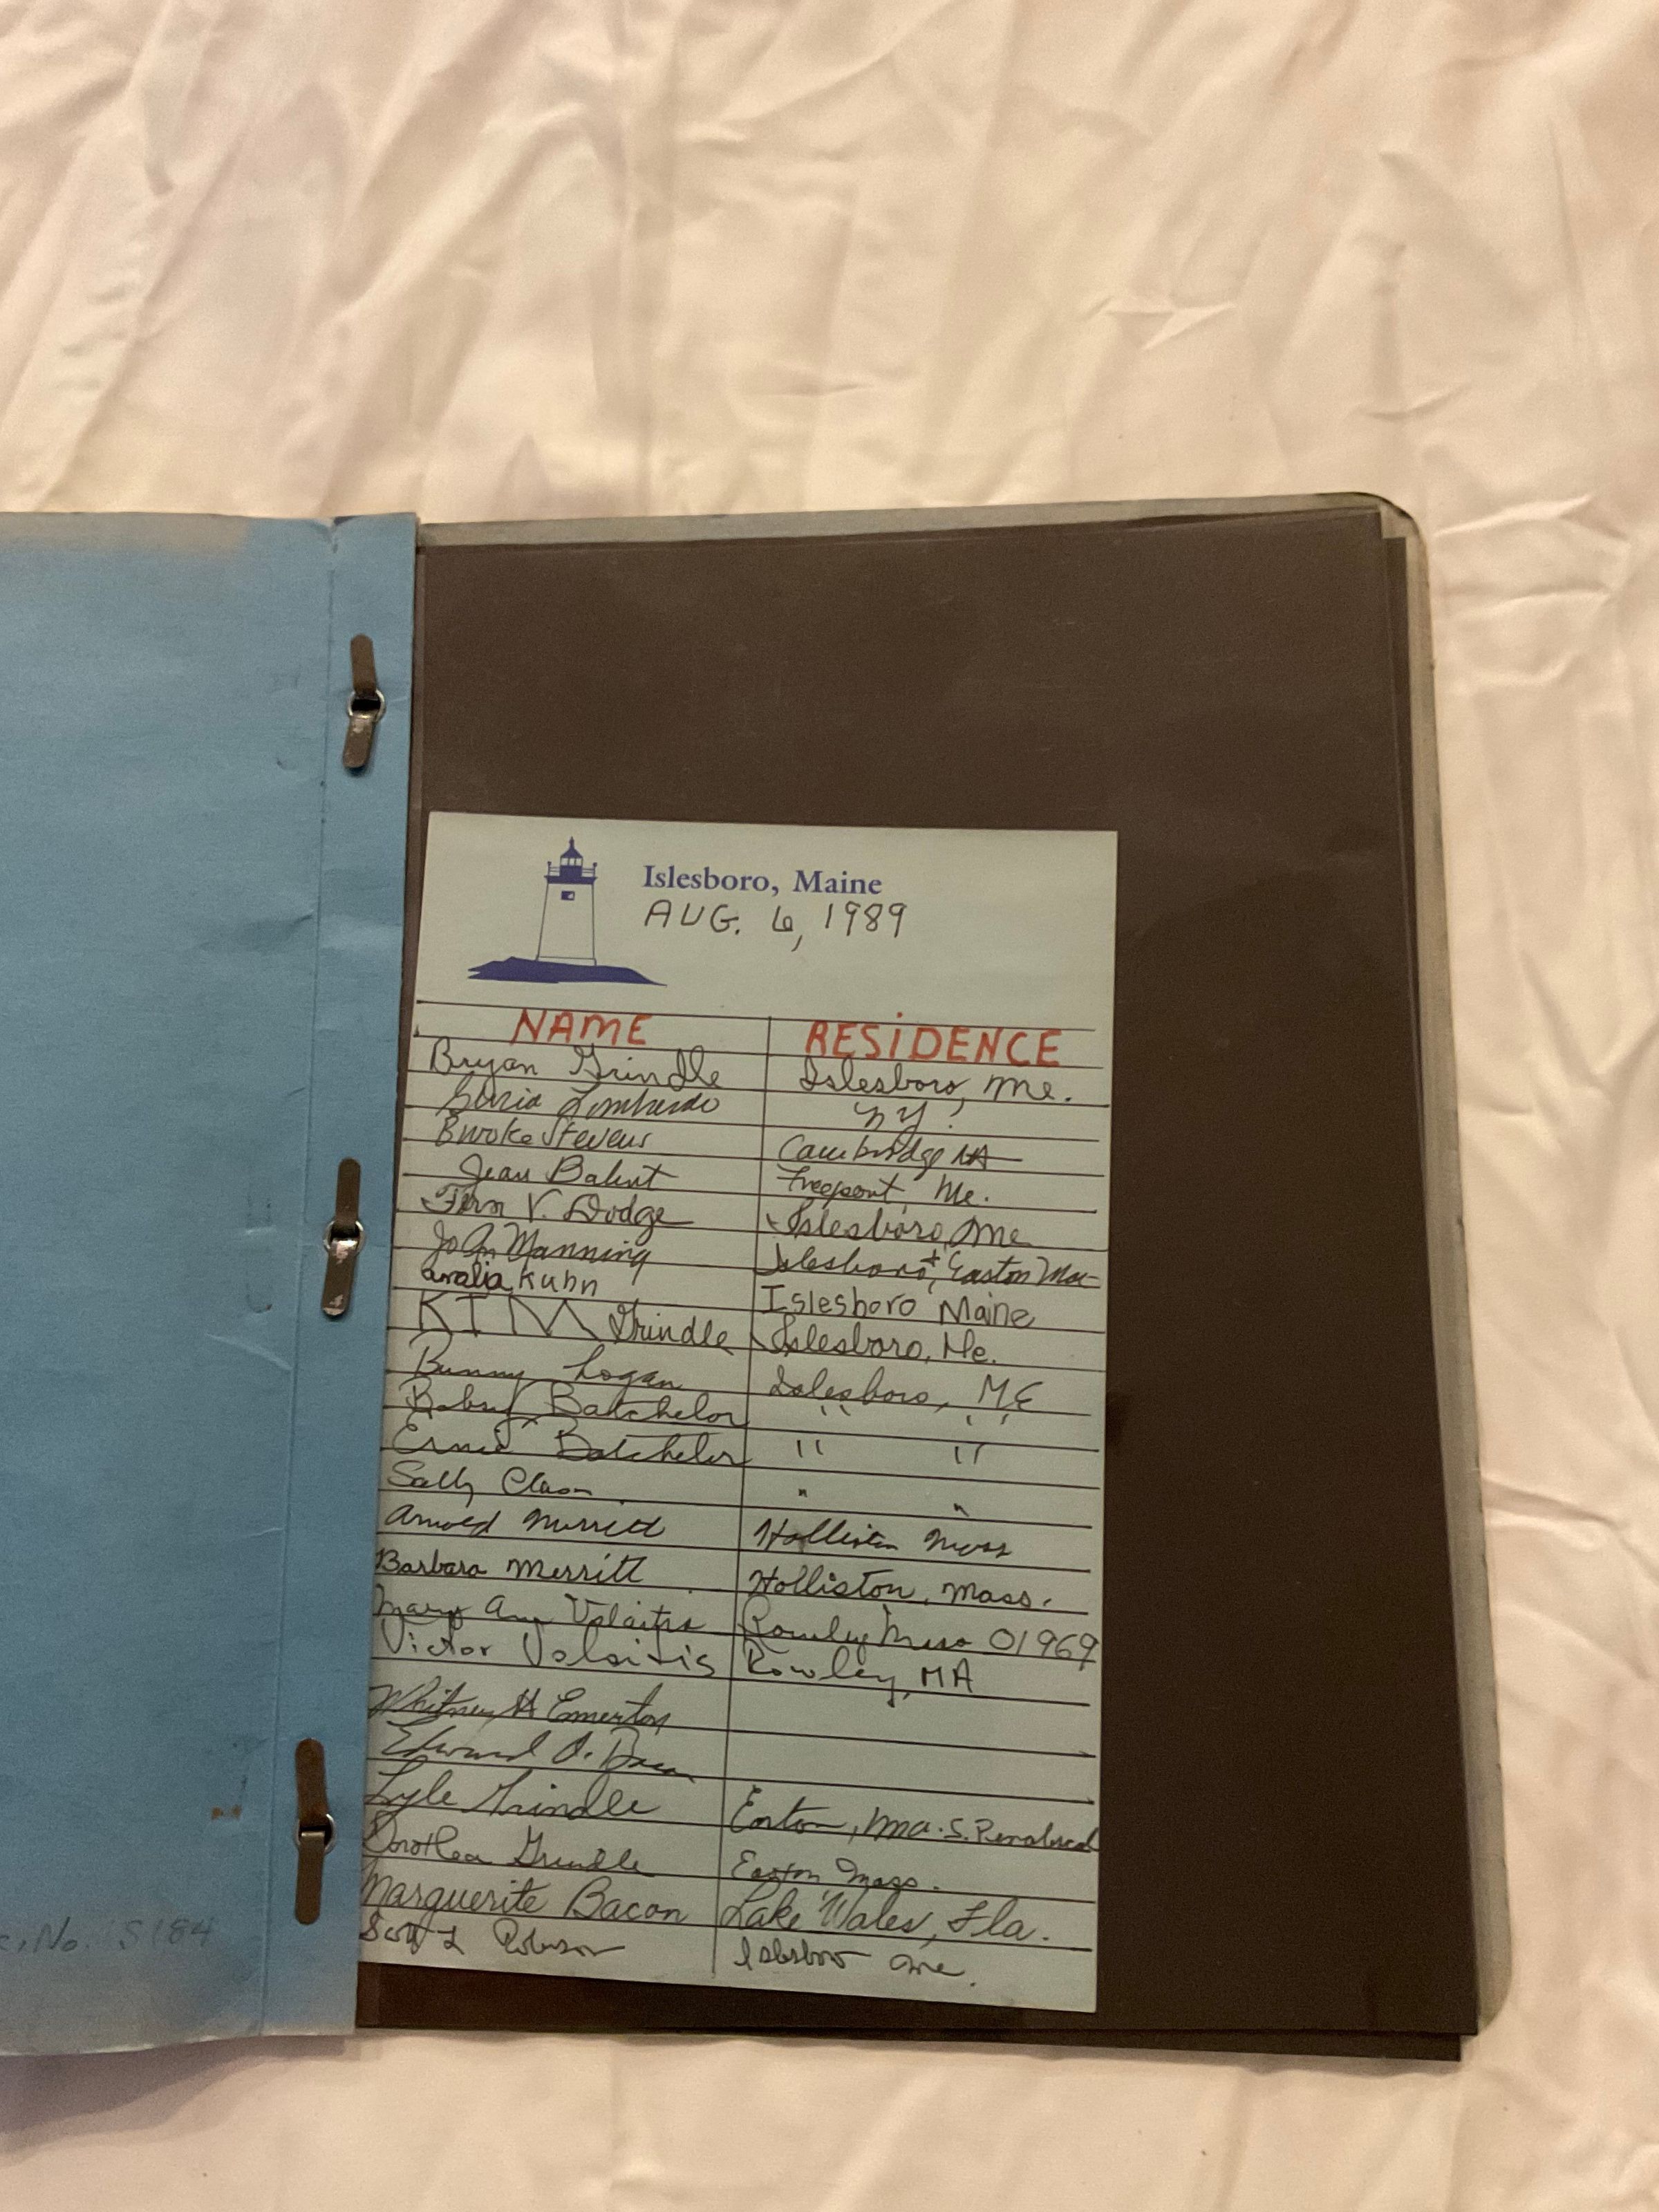 Islesboro, Maine
AUG. 6, 1989
NAME RESIDENCE
Bryan Grindle Islesboro, Me.
Lombardo NY!
Brooke Stevens Cambridge MA
Jean Balint Freeport, Me.
Fern V. Dodge Islesboro, Me
Jo An Manning Islesboro + Easton
Amalia Kuhn Islesboro Maine
KIM Grindle Islesboro, Me.
Bunny Logan Islesboro, ME
Batchelor " "
Ernie Batchelor " "
Sally " "
Arnold Merritt Holliston Mass
Barbara Merritt Holliston, Mass.
Mary Ann Valaitis Rowley Mass 01969
Victor Valaitis Rowley, MA
Whitney H Emerton
Edward
Lyle Grindle Easton, Ma. S.
Dorothea Grindle Easton Mass.
Marguerite Bacon Lake Wales, Fla.
Scott L Islesboro Me.
No. S184